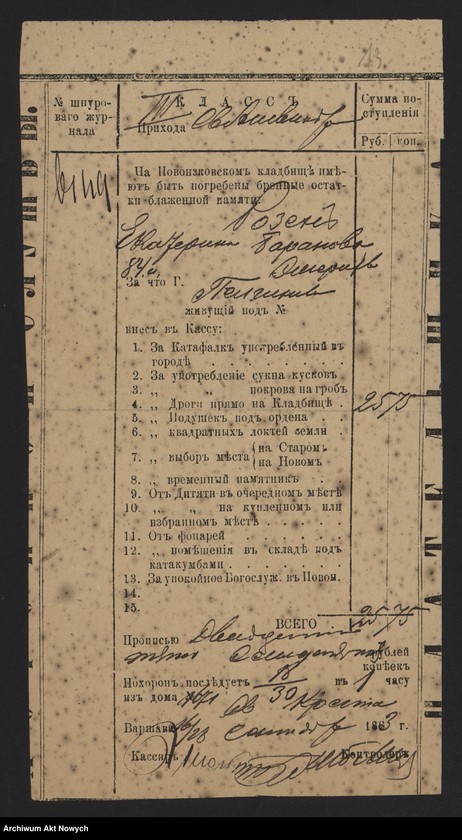 № шнуро-
ваго жур-
нала
III КЛАССЪ
Прихода
Сумма по-
ступленія
Руб. коп.
На Повонзковскомъ кладбищѣ имѣ-
ютъ быть погребены бренные остат-
ки блаженной памяти:
Розенъ
Екатерина
84
За что Г.
живущій подъ №
внесъ въ Кассу:
1. За Катафалкъ употребленный въ
городѣ . . . .
2. За употребленіе сукна кусковъ
3. „ „ покрова на гробъ
4. „ Дроги прямо на Кладбищѣ . 25 75
5. „ Подушекъ подъ ордена . .
6. „ квадратныхъ локтей земли .
7. „ выборъ мѣста {на Старомъ
на Новомъ
8. „ временный памятникъ .
9. Отъ Дитяти въ очередномъ мѣстѣ
10. „ „ на купленномъ или
избранномъ мѣстѣ . . . . .
11. Отъ фонарей . . . . .
12. „ помѣщенія въ складѣ подъ
катакумбами . . . . .
13. За упокойное Богослуж. въ Повон.
14.
15.
ВСЕГО . 25 75
Прописью Двадцать
пять рублей
копѣекъ
Похоронъ послѣдуетъ 18/30 въ 1 часу
изъ дома Св Креста
Варшава 16/28 1883 г.
Кассиръ Контролеръ
Archiwum Akt Nowych